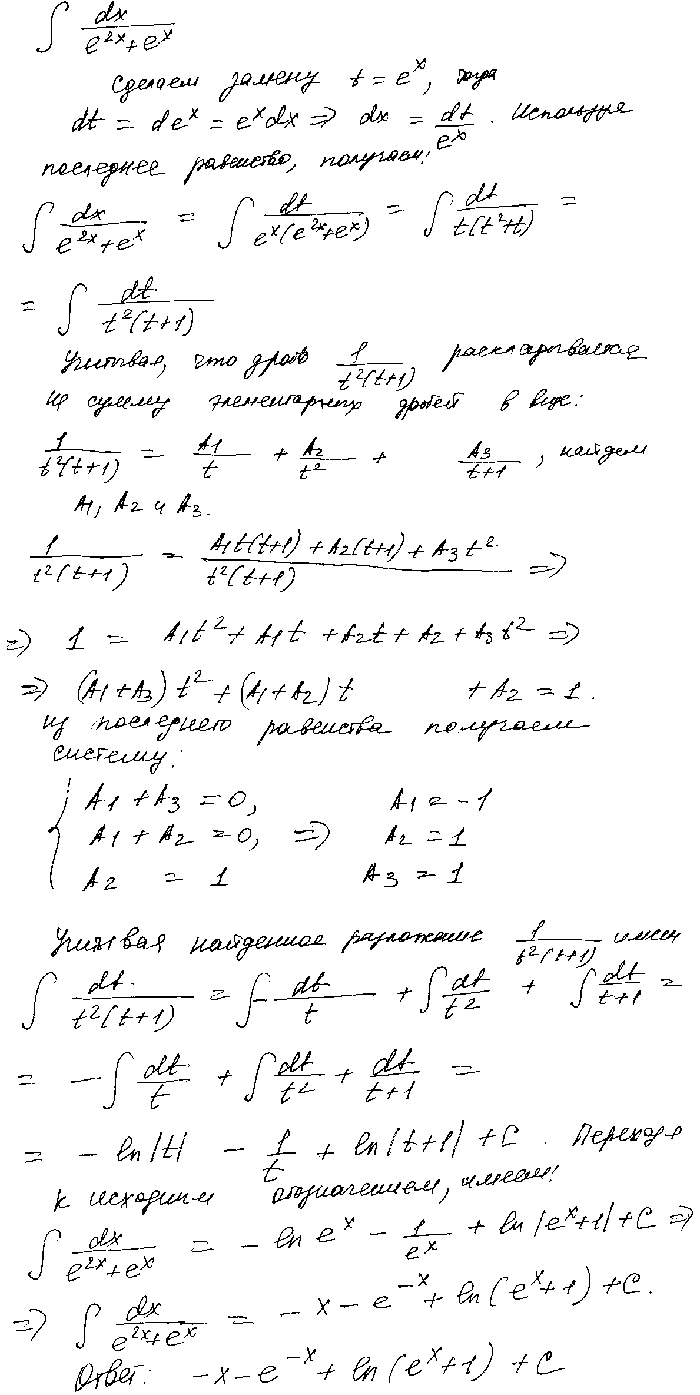 ∫ dx/(e^{2x}+e^x)
Сделаем замену t = e^x, тогда
dt = de^x = e^x dx ⇒ dx = dt/e^x. Используя
последнее равенство, получаем:
∫ dx/(e^{2x}+e^x) = ∫ dt/(e^x(e^{2x}+e^x)) = ∫ dt/(t(t²+t)) =
= ∫ dt/(t²(t+1))
Учитывая, что дробь 1/(t²(t+1)) раскладывается
на сумму элементарных дробей в виде:
1/(t²(t+1)) = A1/t + A2/t² + A3/(t+1), найдем
A1, A2 и A3.
1/(t²(t+1)) = (A1t(t+1) + A2(t+1) + A3t²)/(t²(t+1)) ⇒
⇒ 1 = A1t² + A1t + A2t + A2 + A3t² ⇒
⇒ (A1+A3)t² + (A1+A2)t + A2 = 1.
Из последнего равенства получаем
систему:
{ A1 + A3 = 0, A1 = -1
A1 + A2 = 0, ⇒ A2 = 1
A2 = 1 A3 = 1
Учитывая найденное разложение 1/(t²(t+1)) имеем
∫ dt/(t²(t+1)) = ∫ - dt/t + ∫ dt/t² + ∫ dt/(t+1) =
= - ∫ dt/t + ∫ dt/t² + dt/(t+1) =
= - ln|t| - 1/t + ln|t+1| + C. Переходя
к исходным обозначениям, имеем:
∫ dx/(e^{2x}+e^x) = - ln e^x - 1/e^x + ln|e^x+1| + C ⇒
⇒ ∫ dx/(e^{2x}+e^x) = - x - e^{-x} + ln(e^x+1) + C.
Ответ: -x - e^{-x} + ln(e^x+1) + C